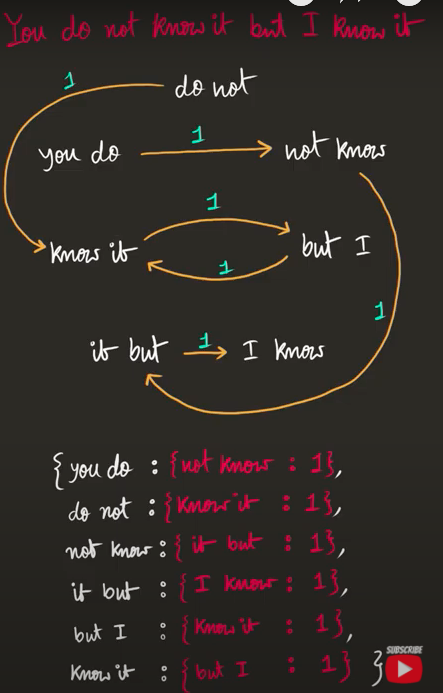 You do not know it but I know it
1
do not
you do
1
not know
1
know it
1
but I
1
it but
1
I know
{ you do : { not know : 1 },
do not : { know it : 1 },
not know : { it but : 1 },
it but : { I know : 1 },
but I : { know it : 1 },
know it : { but I : 1 } }
SUBSCRIBE